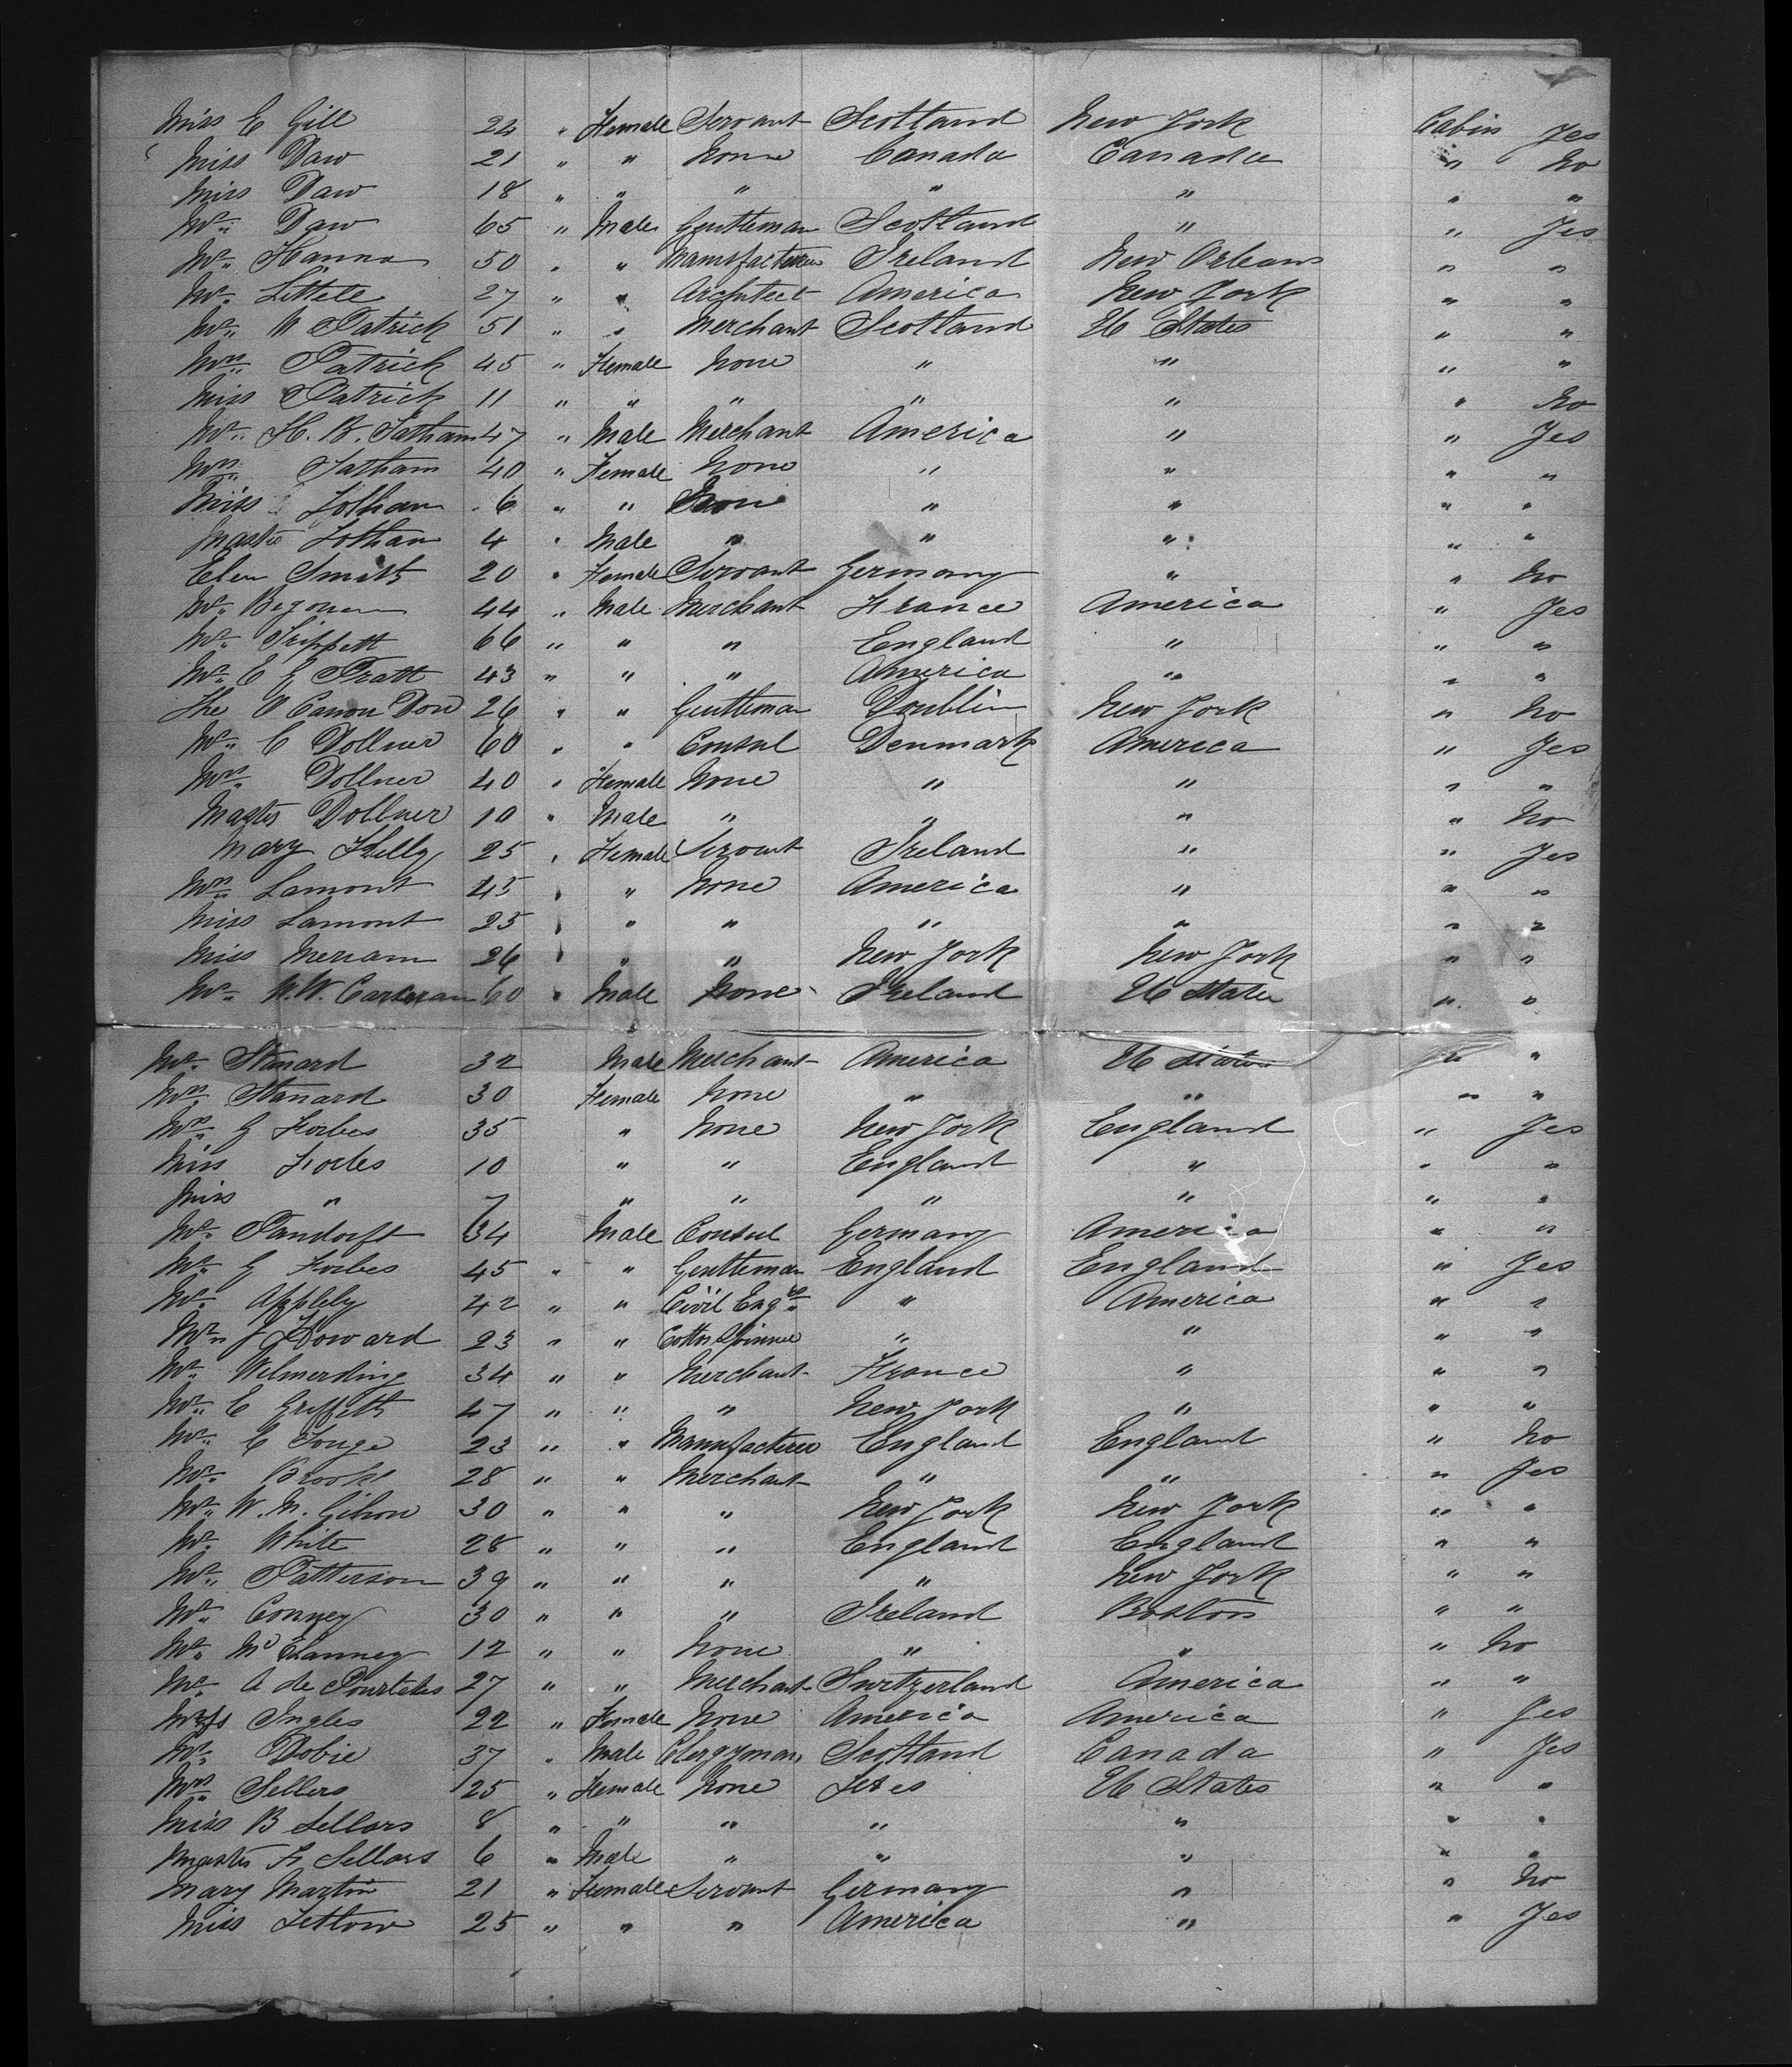 Miss E Gill 24 " Female Servant Scotland New York Cabin Yes
Miss Daw 21 " " None Canada Canada " No
Miss Daw 18 " " " " " " "
Mr. Daw 65 " Male Gentleman Scotland " " Yes
Mr. Hanna 50 " " Manufacturer Ireland New Orleans " "
Mr. Littele 27 " " Architect America New York " "
Mr. W Patrick 51 " " Merchant Scotland U States " "
Mrs. Patrick 45 " Female None " " " "
Miss Patrick 11 " " " " " " No
Mr. H. B. Tatham 47 " Male Merchant America " " Yes
Mrs. Tatham 40 " Female None " " " "
Miss Totham 6 " " None " " " "
Master Totham 4 " Male " " " " "
Elen Smith 20 " Female Servant Germany " " No
Mr. Begouen 44 " Male Merchant France America " Yes
Mr. Trippett 66 " " " England " " "
Mr. E G Pratt 43 " " " America " " "
The O Canon Don 26 " " Gentleman Doublin New York " No
Mr. C Dollner 60 " " Consul Denmark America " Yes
Mrs. Dollner 40 " Female None " " " "
Master Dollner 10 " Male " " " " No
Mary Kelly 25 " Female Servant Ireland " " Yes
Mrs. Lamont 45 " " None America " " "
Miss Lamont 25 " " " " " " "
Miss Merriam 26 " " " New York New York " "
Mr. W.W. 60 " Male None Ireland U States " "
Mr. Stanard 32 Male Merchant America U States " "
Mrs. Stanard 30 Female None " " " "
Mrs. G Forbes 35 " None New York England " Yes
Miss Forbes 10 " " England " " "
Miss " 7 " " " " " "
Mr. 34 Male Consul Germany America " "
Mr. G Forbes 45 " " Gentleman England England " Yes
Mr. Appleby 42 " " Civil Engr. " America " "
Mr. J Howard 23 " " Cotton Spinner " " " "
Mr. Wilmerding 34 " " Merchant France " " "
Mr. C Griffith 47 " " " New York " " "
Mr. C Touge 23 " " Manufacturer England England " No
Mr. Brooks 28 " " Merchant " " " Yes
Mr. W. M. Gihon 30 " " " New York New York " "
Mr. White 28 " " " England England " "
Mr. Patterson 39 " " " " New York " "
Mr. Conney 30 " " " Ireland Boston " "
Mr. 12 " " None " " " No
Mr. A de Pourtales 27 " " Merchant Switzerland America " "
Ingles 22 " Female None America America " Yes
Mr. Dobie 37 " Male Clergyman Scotland Canada " Yes
Mrs. Sellers 25 " Female None U States " "
Miss B Sellars 8 " " " " " " "
Master F Sellars 6 " Male " " " " "
Mary Martin 21 " Female Servant Germany " " No
Miss Letlow 25 " " " America " " Yes